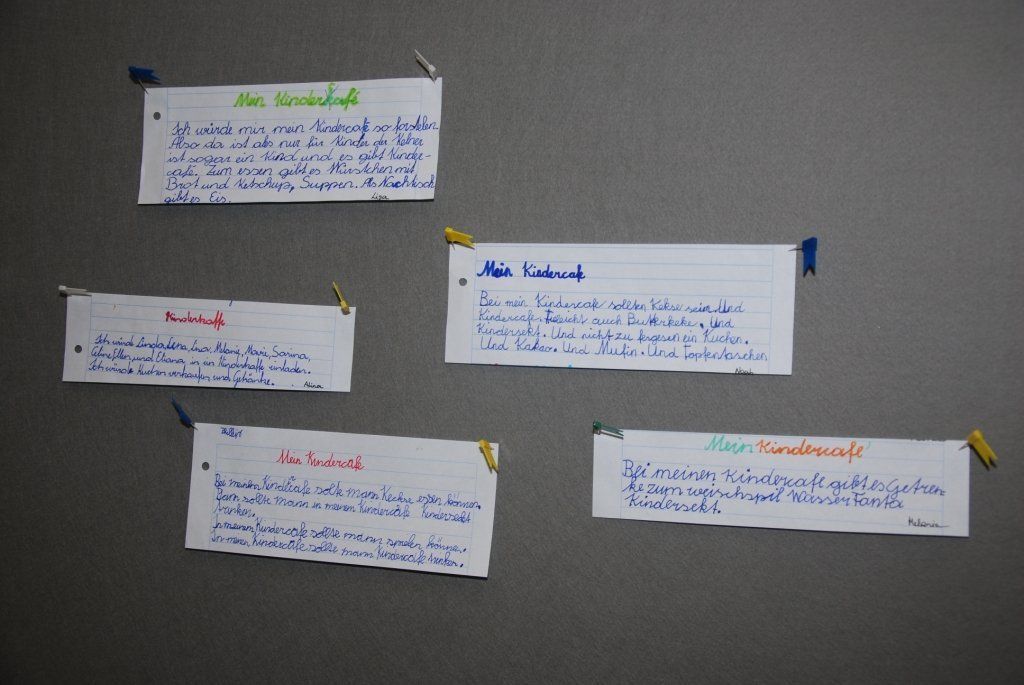 Mein Kinderkafé
Ich würde mir mein Kindercafe so forstelen
Also da ist ales nur für Kinder der Kelner
ist sogar ein Kind und es gibt Kinder-
cafe. Zum essen gibt es Würstchen mit
Brot und Ketschup, Suppen. Als Nachtisch
gibt es Eis.
Lisa
Mein Kindercafe
Bei mein Kindercafe sollten Kekse sein. Und
Kindercafe. fieleicht auch Butterkeke. Und
Kindersekt. Und nicht zu fergesen ein Kuchen.
Und Kakao. Und Mufin. Und Topfentaschen
Noah
Kinderkaffe
Ich wird Linda, Lena, Lisa, Melanie, Marie, Sarina,
Celine, Ellen, und Eliana in in Kinderkaffe einladen.
Ich würde Kuchen verkaufen und Getränke.
Alina
Mein Kindercafe
Bei meinem Kindercafe solte mann Keckse essen können.
Dann sollte mann in meinem Kindercafe Kindersekt
trinken.
In meinem Kindercafe sollte mann spielen können.
In meinen Kindercafe sollte mann Kindercafe trinken.
Mein Kindercafé
Bei meinen Kindercafe gibt es Getren-
ke zum weischspil Wasser Fanta
Kindersekt.
Melanie